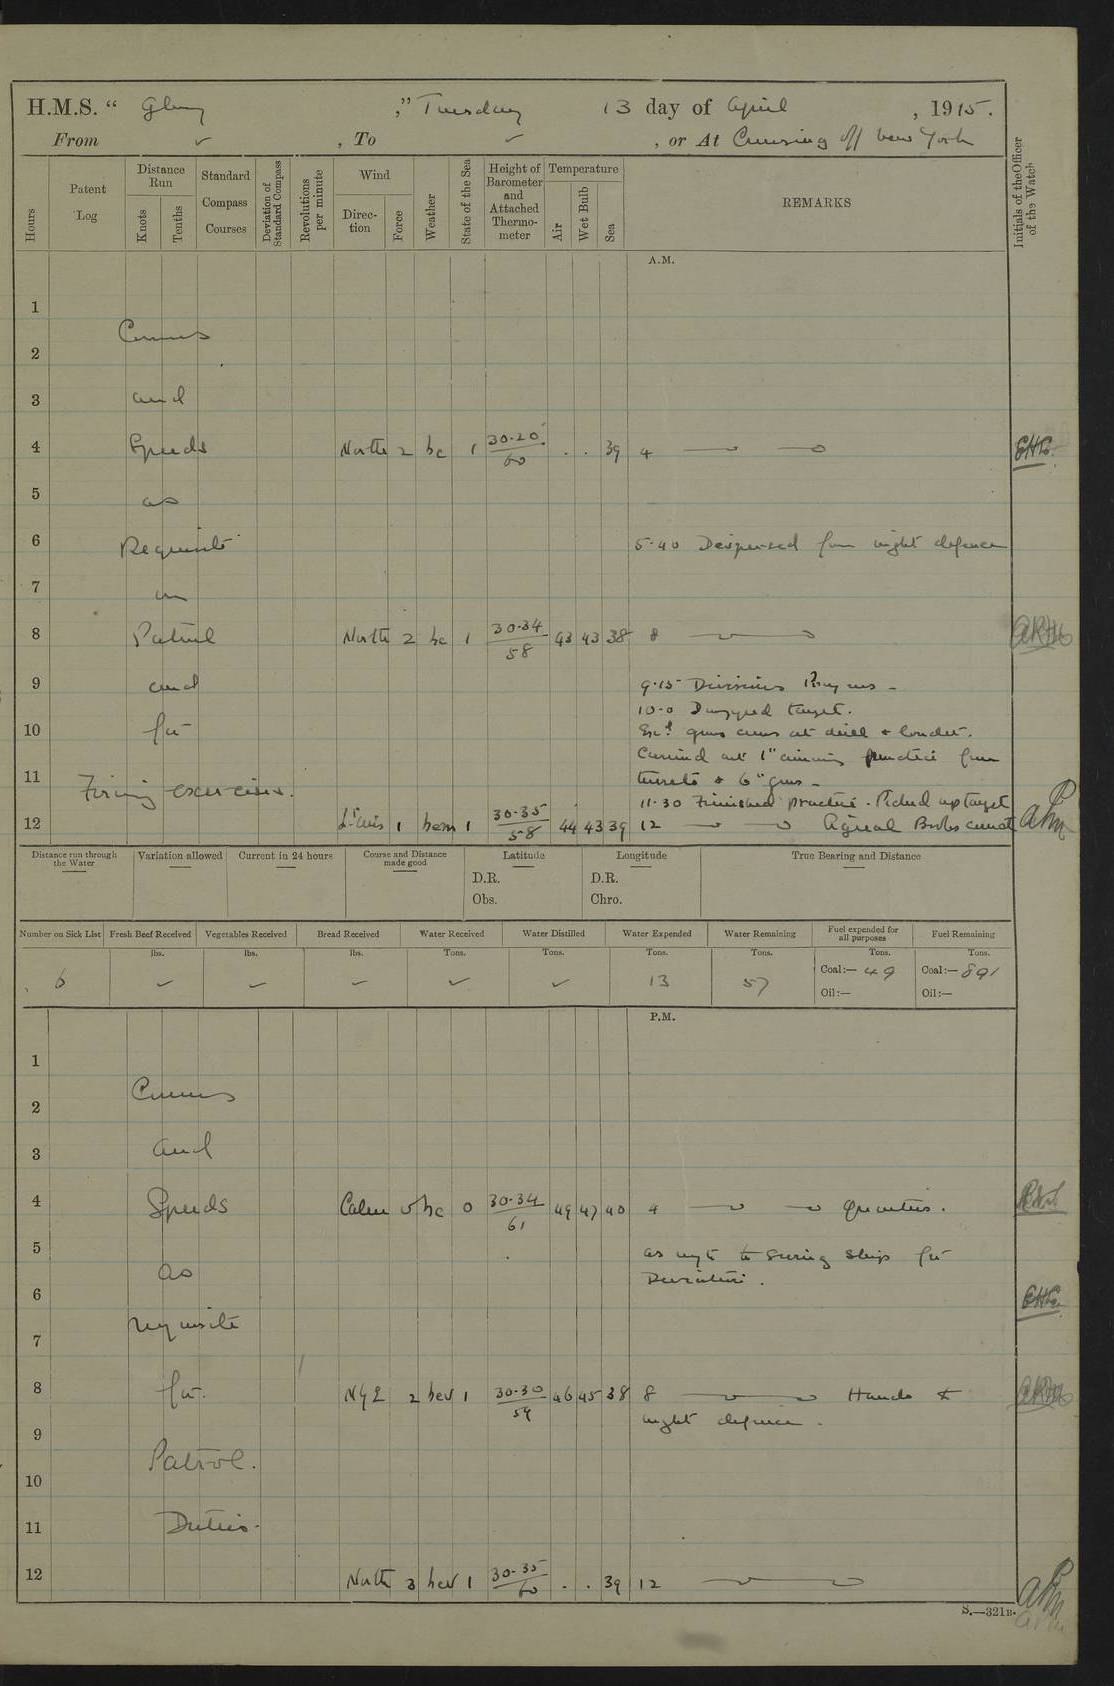 H.M.S. " Glory ," Tuesday 13 day of April , 1915.
From ✓ , To ✓ , or At Cruising off New York
Hours
Patent Log
Distance Run
Knots
Tenths
Standard Compass Courses
Deviation of Standard Compass
Revolutions per minute
Wind
Direction
Force
Weather
State of the Sea
Height of Barometer and Attached Thermometer
Temperature
Air
Wet Bulb
Sea
REMARKS
Initials of the Officer of the Watch
A.M.
1
Courses
2
3 and
4 Speeds North 2 bc 1 30.20/60 . . 39 4
5 as
6 Requisite 5.40 Dispersed from night defence
7 on
8 Patrol North 2 bc 1 30.34/58 43 43 38 8
9 and 9.15 Divisions Prayers -
10.0 Dropped target.
10 for guns crews at drill &
Carried out 1" aiming practice from
11 Firing exercises. turrets & 6" guns -
11.30 Finished practice. Picked up target
12 Lt airs 1 bcm 1 30.35/58 44 43 39 12 Signal Books correct
Distance run through the Water
Variation allowed
Current in 24 hours
Course and Distance made good
Latitude
D.R.
Obs.
Longitude
D.R.
Chro.
True Bearing and Distance
Number on Sick List
Fresh Beef Received
Vegetables Received
Bread Received
Water Received
Water Distilled
Water Expended
Water Remaining
Fuel expended for all purposes
Fuel Remaining
lbs. lbs. lbs. Tons. Tons. Tons. Tons. Tons. Tons.
6 ✓ ✓ ✓ ✓ ✓ 13 57 Coal:— 49 Coal:— 891
Oil:— Oil:—
P.M.
1
Courses
2
3 and
4 Speeds Calm 0 bc 0 30.34/61 49 47 40 4 Quarters.
5 as reqte to swing ship for
as Deviation.
6
requisite
7
8 for. N'ly E 2 bcv 1 30.30/59 46 45 38 8 Hands to
night defence.
9
Patrol.
10
11 Duties.
12 North 3 bcv 1 30.35/60 . . 39 12
S.—321B.